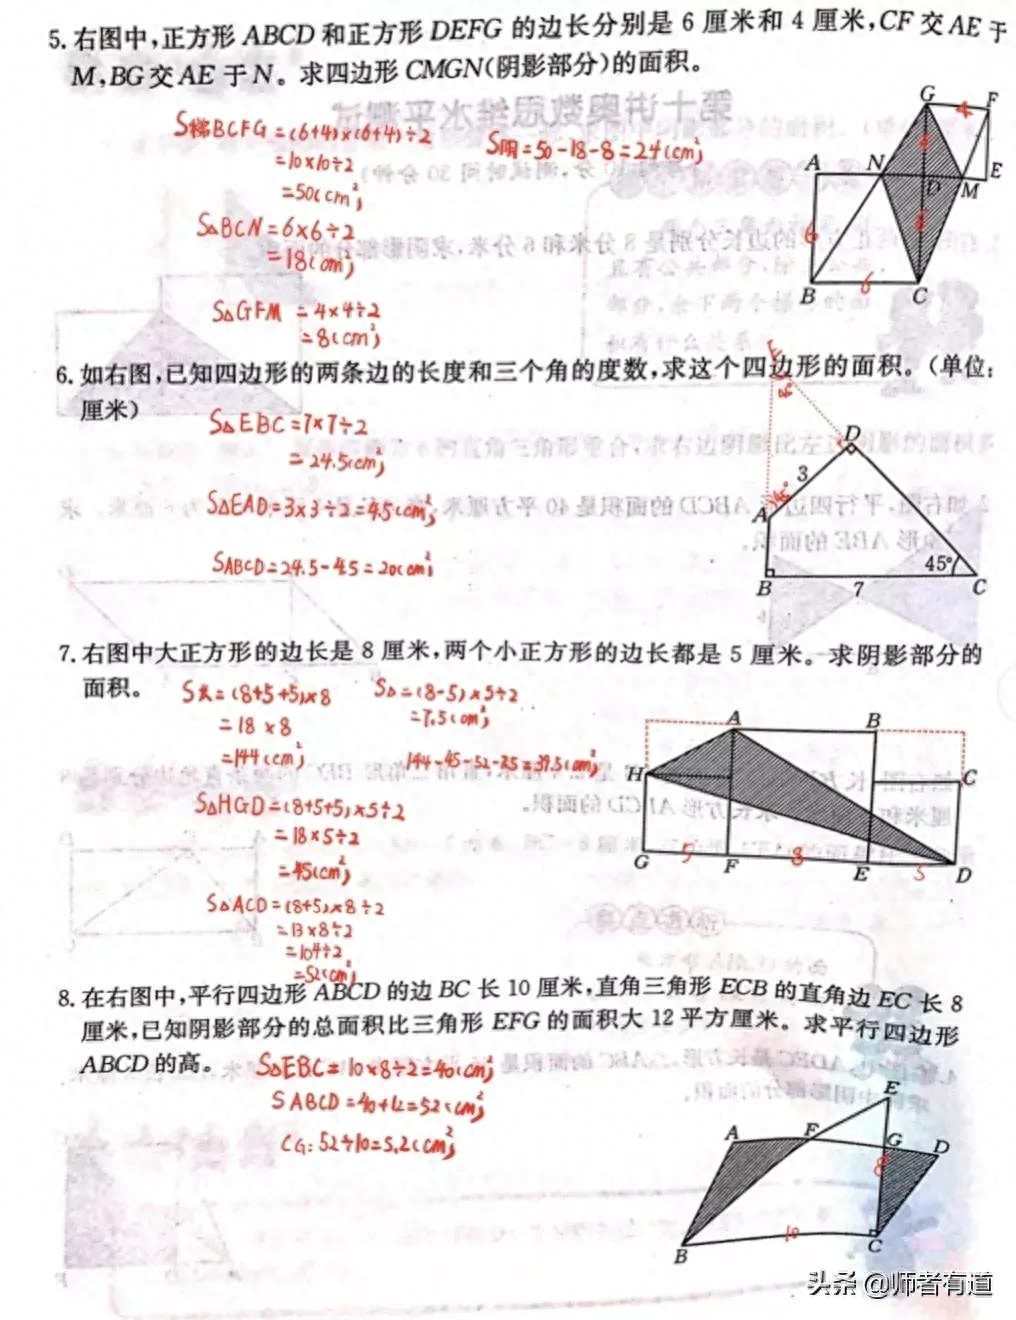 5. 右图中,正方形 ABCD 和正方形 DEFG 的边长分别是 6 厘米和 4 厘米,CF 交 AE 于
M,BG 交 AE 于 N。求四边形 CMGN(阴影部分)的面积。
第十讲奥数思维水平测试
S梯BCFG=(6+4)×(6+4)÷2
=10×10÷2
=50(cm²)
S阴=50-18-8=24(cm²)
S△BCN=6×6÷2
=18(cm²)
S△GFM=4×4÷2
=8(cm²)
G
F
4
4
A
N
D
M
E
6
6
B
6
C
6. 如右图,已知四边形的两条边的长度和三个角的度数,求这个四边形的面积。(单位:
厘米)
S△EBC=7×7÷2
=24.5(cm²)
S△EAD=3×3÷2=4.5(cm²)
SABCD=24.5-4.5=20(cm²)
E
45°
D
3
45°
A
45°
B
7
C
7. 右图中大正方形的边长是 8 厘米,两个小正方形的边长都是 5 厘米。求阴影部分的
面积。
S大=(8+5+5)×8
=18×8
=144(cm²)
S△=(8-5)×5÷2
=7.5(cm²)
144-45-52-7.5=39.5(cm²)
S△HGD=(8+5+5)×5÷2
=18×5÷2
=45(cm²)
S△ACD=(8+5)×8÷2
=13×8÷2
=104÷2
=52(cm²)
A
B
H
C
G
5
F
8
E
5
D
8. 在右图中,平行四边形 ABCD 的边 BC 长 10 厘米,直角三角形 ECB 的直角边 EC 长 8
厘米,已知阴影部分的总面积比三角形 EFG 的面积大 12 平方厘米。求平行四边形
ABCD 的高。
S△EBC=10×8÷2=40(cm²)
SABCD=40+12=52(cm²)
CG:52÷10=5.2(cm²)
E
A
F
G
D
8
B
10
C
头条 @师者有道